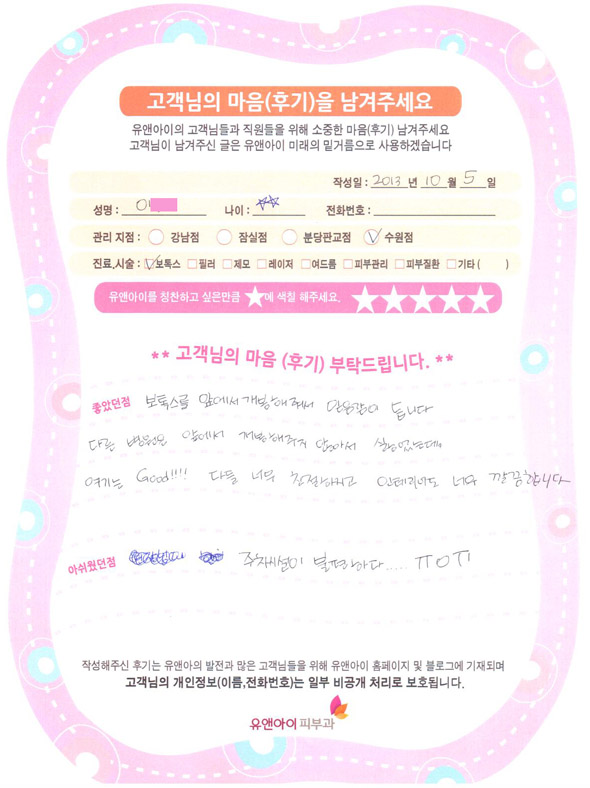 고객님의 마음(후기)을 남겨주세요
유앤아이의 고객님들과 직원들을 위해 소중한 마음(후기) 남겨주세요
고객님이 남겨주신 글은 유앤아이 미래의 밑거름으로 사용하겠습니다
작성일 : 2013 년 10 월 5 일
성명 : 나이 : ☆☆ 전화번호 :
관리 지점 : 강남점 잠실점 분당판교점 수원점
진료,시술 : 보톡스 필러 제모 레이저 여드름 피부관리 피부질환 기타 ( )
유앤아이를 칭찬하고 싶은만큼 ★에 색칠 해주세요. ★★★★★
** 고객님의 마음 (후기) 부탁드립니다. **
좋았던점 보톡스를 앞에서 개봉해줘서 믿음감이 듭니다
다른 병원은 앞에서 개봉해주지 않아서
여기는 Good!!!! 다들 너무 친절하시고 인테리어도 너무 깔끔합니다
아쉬웠던점 주차시설이 불편하다.... ㅠㅇㅠ
작성해주신 후기는 유앤아의 발전과 많은 고객님들을 위해 유앤아이 홈페이지 및 블로그에 기재되며
고객님의 개인정보(이름,전화번호)는 일부 비공개 처리로 보호됩니다.
유앤아이 피부과